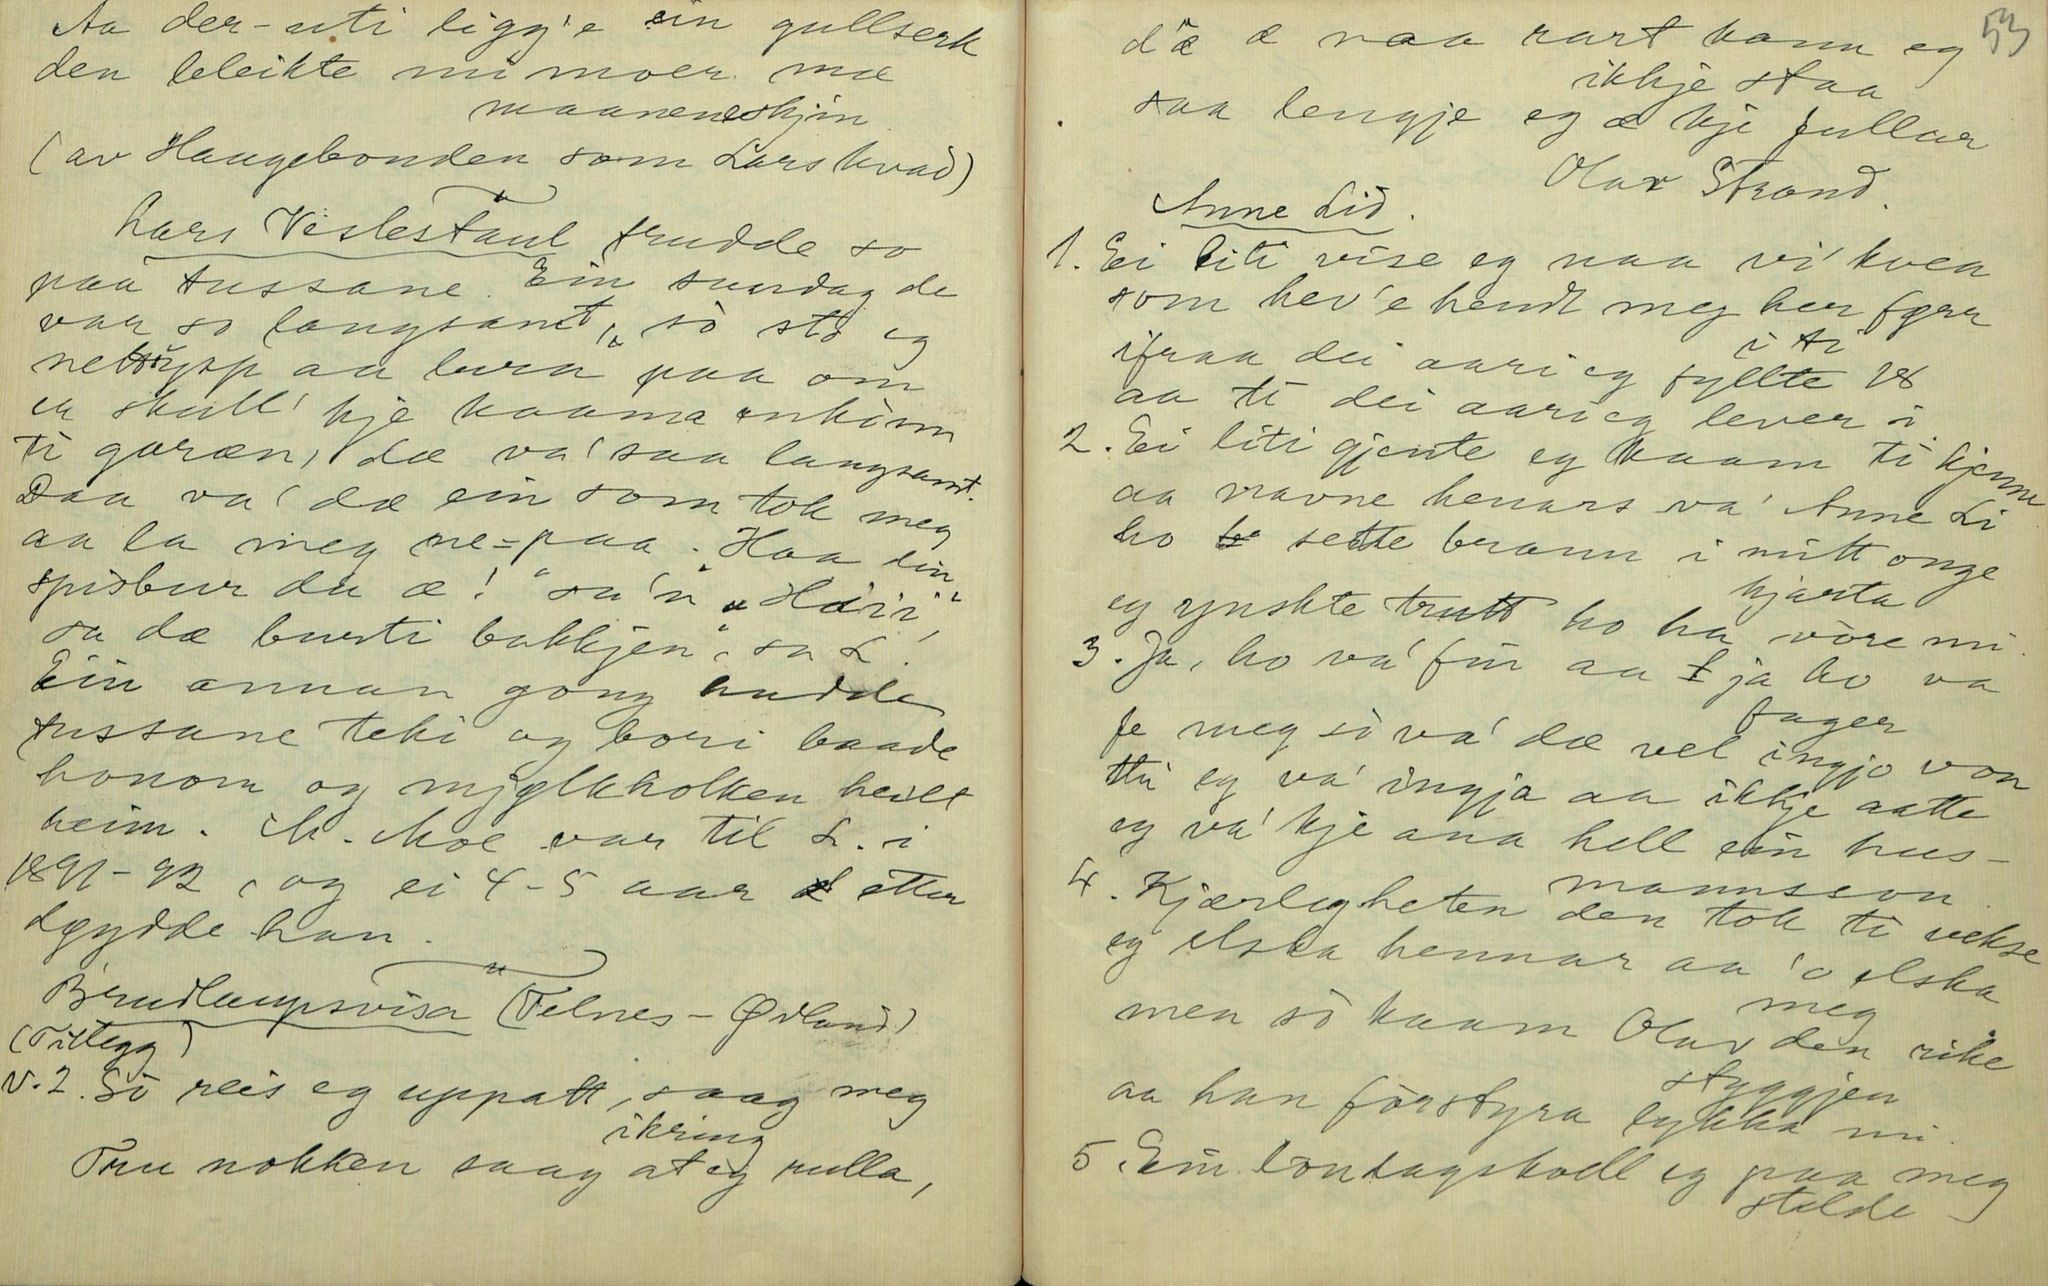 Aa der-uti ligg'e ein gullserk
den bleikte mi moer mæ
maaneneskjin
(av Haugebonden som Lars kvad)
Lars Vislestaul trudde so
paa tussane. Ein sundag de
var so langsamt, "so sto eg
aa lura paa om
en skull' kje kaama
ti garæn, dæ va' saa langsamt.
Daa va' dæ ein som tok meg
aa la meg ne-paa. Haa din
spisbur du æ!" sa'n "
sa dæ burti bakkjen", sa L.
Ein annan gong hadde
tussane teki og bori baade
honom og mjølkholken heilt
heim. M. Moe var til L. i
1891-92, og ei 4-5 aar etter
døydde han.
Brudlaupsvisa (Felnes - Ødland)
(Tillegg)
V.2. So reis eg uppatt, saag meg
ikring
Tru nokken saag at eg rulla,
53
d'æ æ naa rart kann eg
ikkje staa
saa lengje eg æ kje fullar
Olav Strand.
Anne Lid.
1. Ei liti vise eg naa vi' kvea
som hev'e hendt meg her førr
ifraa dei aari eg fyllte 18
i ti
aa ti dei aari eg lever i.
2. Ei liti gjente eg kaam ti kjenne
aa navne henars va' Anne Li
ho sette brann i mitt onge
hjarta
eg ynskte trutt ho ha vore mi.
3. Ja, ho va' fin aa ja ho va
fager
fe meg so va' dæ vel ingjo von
thi eg va' ingja aa ikkje aatte
eg va' kje ana hell ein hus-
mannsson.
4. Kjærligheten den tok ti vekse
eg elska hennar aa 'o elska
meg
men so kaam Olav den rike
styggjen
aa han forstyra lykka mi.
5. Ein londagskvell eg paa meg
stelde